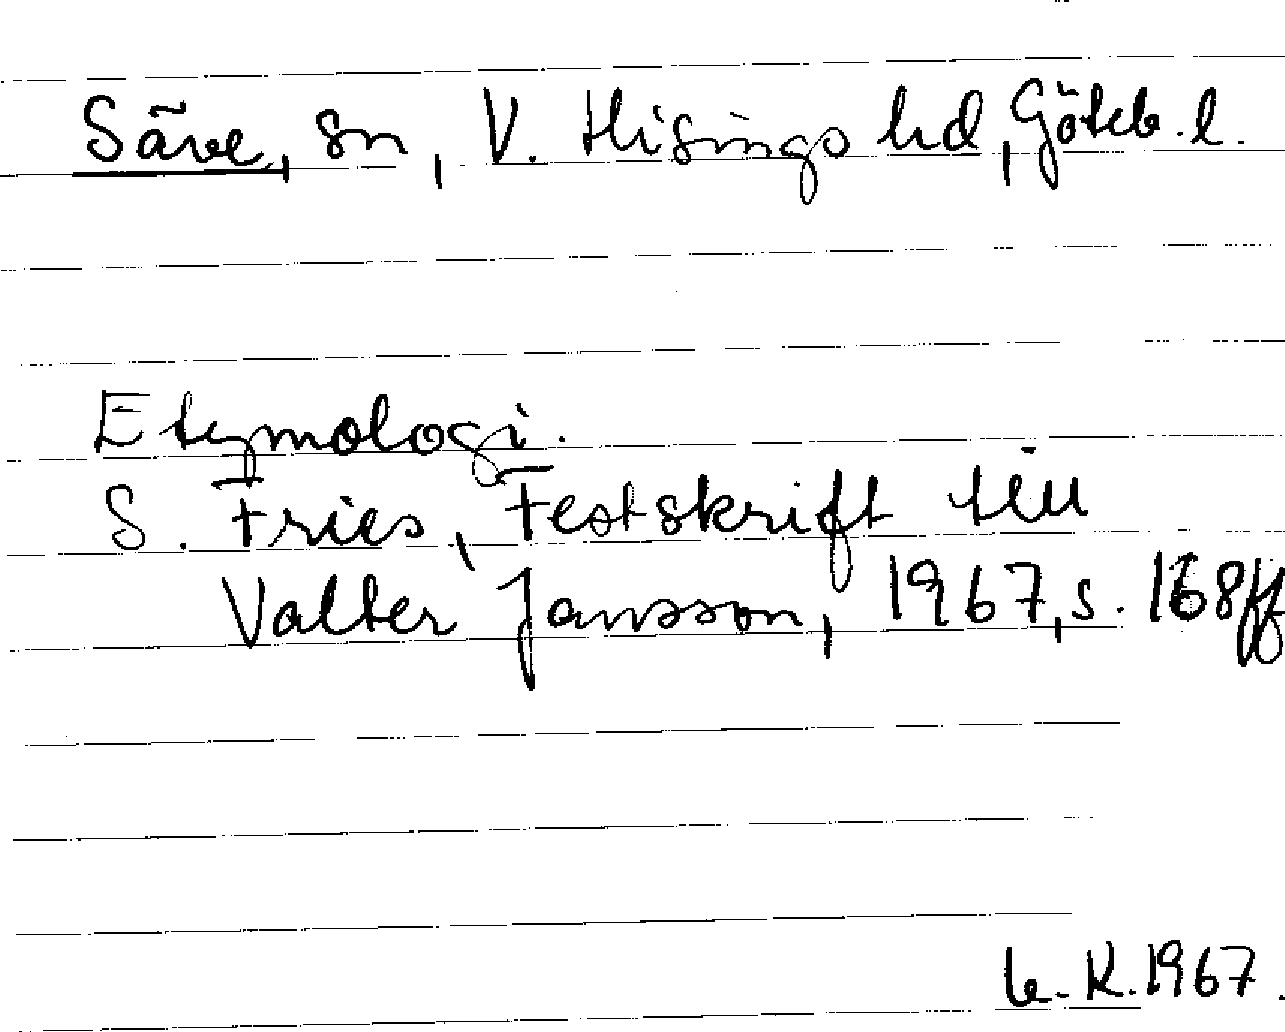 Säve, sn, V. Hisings hd, Göteb. l.
Etymologi.
S. Fries, Festskrift till
Valter Jansson, 1967, s. 168ff
K. 1967.